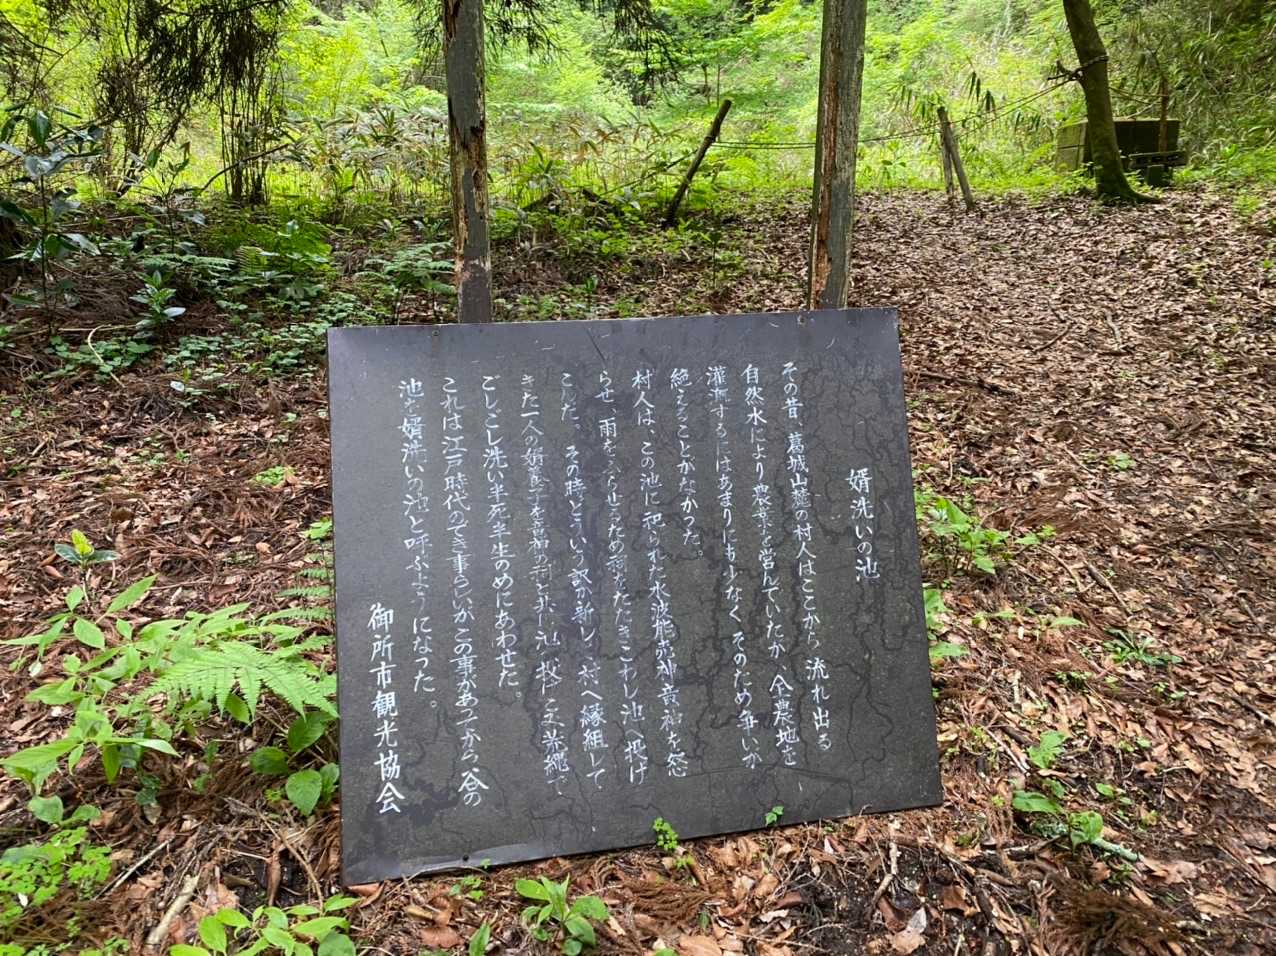 婿洗いの池
その昔、葛城山麓の村人はここから流れ出る
自然水により農業を営んでいたが、全農地を
灌漑するにはあまりにも少なく そのため争いが
絶えることがなかった。
村人は、この池に祀られた水波能売神竜神を怒
らせ、雨をふらせるため祠をたたきこわし池へ投げ
こんだ。その時どういう訳か新しく村へ縁組して
きた一人の婿養子を竜神の祠と共に池
ごしごし洗い半死半生のめにあわせた。
これは江戸時代のでき事らしいがこの事があってから谷の
池を婿洗いの池と呼ぶようになった。
御所市観光協会